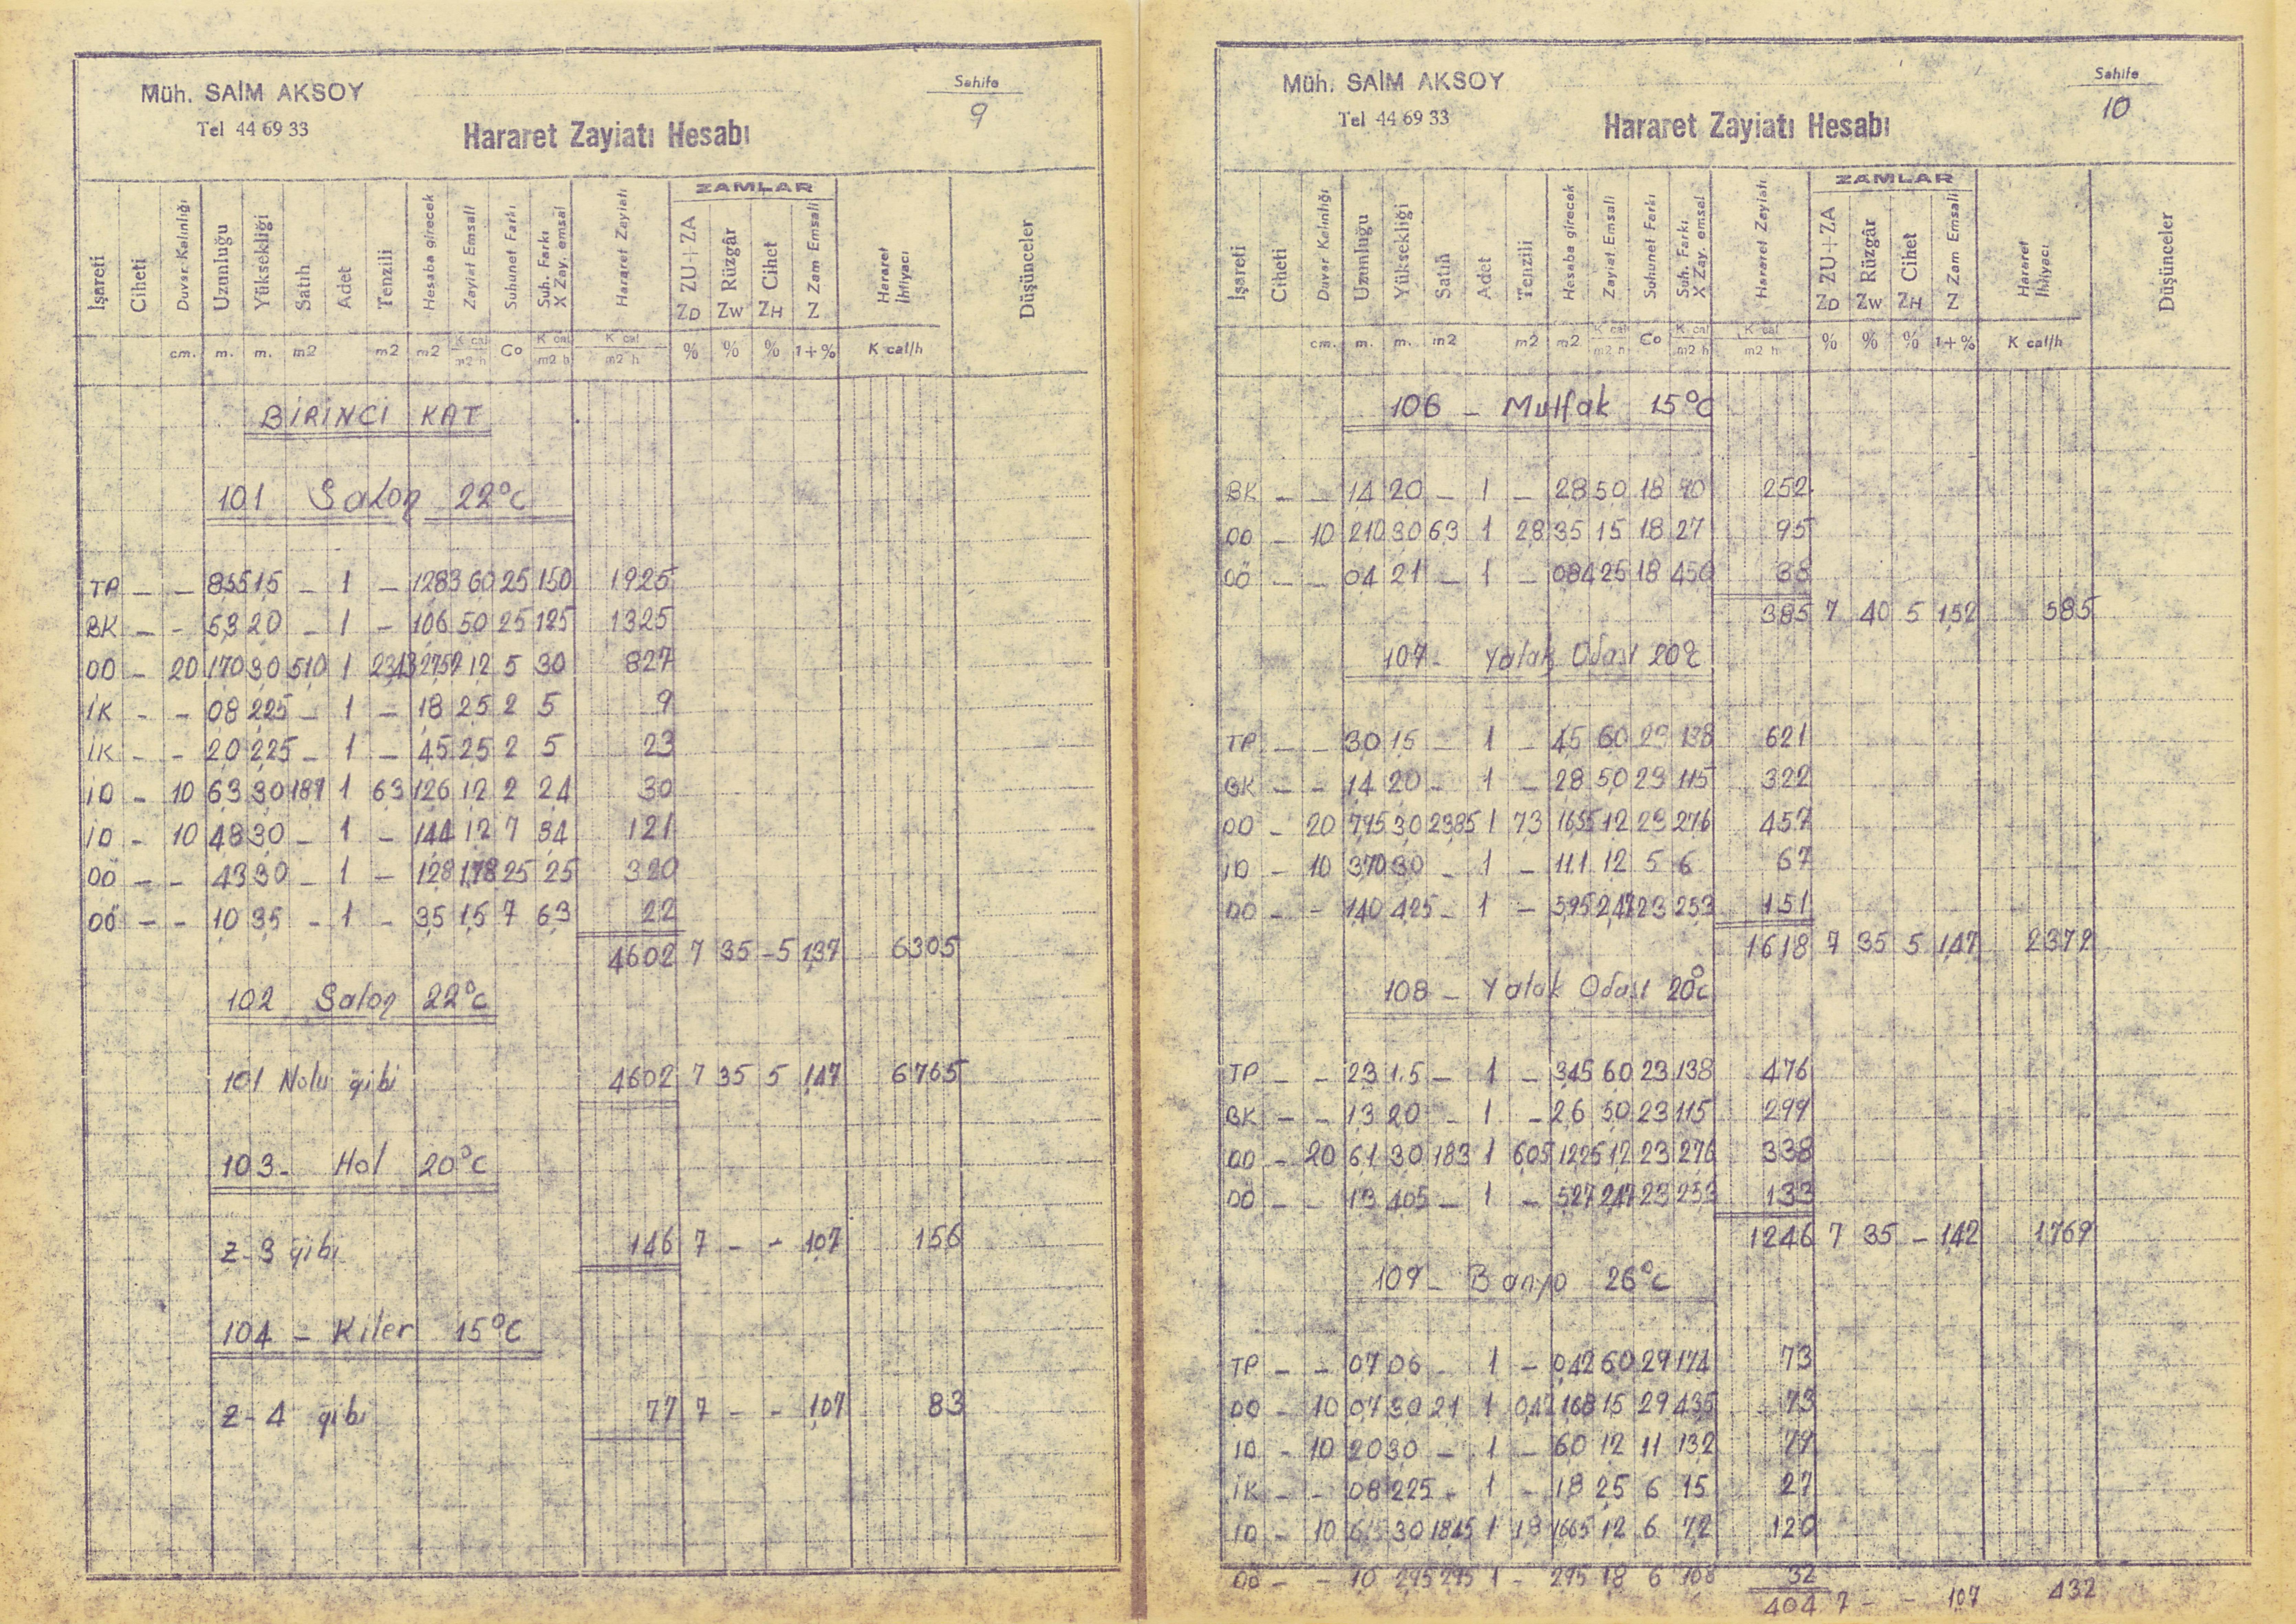 Müh. SAİM AKSOY
Tel 44 69 33
Hararet Zayiatı Hesabı
Sahife
9
İşareti Ciheti Duvar Kalınlığı Uzunluğu Yüksekliği Satıh Adet Tenzili Hesaba girecek Zayiat Emsali Suhunet Farkı Suh. Farkı X Zay. emsal Hararet Zayiatı ZAMLAR ZU+ZA Rüzgâr Cihet Zam Emsali Hararet İhtiyacı Düşünceler
ZD Zw ZH Z
cm. m. m. m2 m2 m2 K cal m2 h Co K cal m2 h K cal m2 h % % % 1+% K cal/h
BİRİNCİ KAT
101 Salon 22°c
TP — — 8,55 1,5 — 1 — 12,83 60 25 150 1925
BK — — 5,3 2,0 — 1 — 10,6 5,0 25 125 1325
DD — 20 170 3,0 510 1 2343 2757 1,2 5 30 827
İK — — 0,8 2,25 — 1 — 1,8 2,5 2 5 9
İK — — 2,0 2,25 — 1 — 4,5 2,5 2 5 23
İD — 10 6,3 3,0 189 1 6,3 12,6 1,2 2 2,4 30
İD — 10 4,8 3,0 — 1 — 14,4 1,2 7 8,4 121
DÖ — — 4,3 3,0 — 1 — 12,8 1,78 25 25 320
DÖ — — 1,0 3,5 — 1 — 3,5 1,5 7 6,3 22
4602 7 35 -5 1,37 6305
102 Salon 22°c
101 Nolu gibi 4602 7 35 5 1,47 6765
103- Hol 20°c
Z-3 gibi 146 7 — — 1,07 156
104 — Kiler 15°C
Z-4 gibi 77 7 — — 1,07 83
Müh. SAİM AKSOY
Tel 44 69 33
Hararet Zayiatı Hesabı
Sahife
10
İşareti Ciheti Duvar Kalınlığı Uzunluğu Yüksekliği Satıh Adet Tenzili Hesaba girecek Zayiat Emsali Suhunet Farkı Suh. Farkı X Zay. emsal Hararet Zayiatı ZAMLAR ZU+ZA Rüzgâr Cihet Zam Emsali Hararet İhtiyacı Düşünceler
ZD Zw ZH Z
cm. m. m. m2 m2 m2 K cal m2 h Co K cal m2 h K cal m2 h % % % 1+% K cal/h
106 — Mutfak 15°C
BK — — 1,4 2,0 — 1 — 2,8 5,0 18 90 252
DD — 10 2,10 3,0 6,3 1 2,8 3,5 1,5 18 27 95
DÖ — — 0,4 2,1 — 1 — 0,84 2,5 18 450 38
385 7 40 5 1,52 585
107- Yatak Odası 20°c
TP — — 3,0 1,5 — 1 — 4,5 6,0 23 138 621
BK — — 1,4 2,0 — 1 — 2,8 5,0 23 115 322
DD — 20 7,95 3,0 23,85 1 7,3 16,55 1,2 23 27,6 457
İD — 10 3,70 3,0 — 1 — 11,1 1,2 5 6 67
DÖ — — 1,40 4,25 — 1 — 5,95 2,47 23 253 151
1618 7 35 5 1,47 2372
108 — Yatak Odası 20°c
TP — — 2,3 1.5 — 1 — 3,45 6,0 23 138 476
BK — — 1,3 2,0 — 1 — 2,6 5,0 23 115 299
DD — 20 6,1 3,0 18,3 1 6,05 12,25 1,2 23 27,6 338
DÖ — — 1,3 4,05 — 1 — 5,27 2,47 23 253 133
1246 7 35 — 1,42 1769
109 — Banyo 26°c
TP — — 0,7 0,6 1 — 0,42 6,0 29 174 73
DD — 10 0,7 3,0 2,1 1 0,42 1,68 1,5 29 43,5 73
İD — 10 2,0 3,0 — 1 — 6,0 1,2 11 13,2 79
İK — — 0,8 2,25 — 1 — 1,8 2,5 6 15 27
İD — 10 6,15 3,0 18,45 1 1,8 16,65 1,2 6 7,2 120
DÖ — — 1,0 2,95 2,95 1 — 2,95 1,8 6 10,8 32
404 7 — — 1,07 432